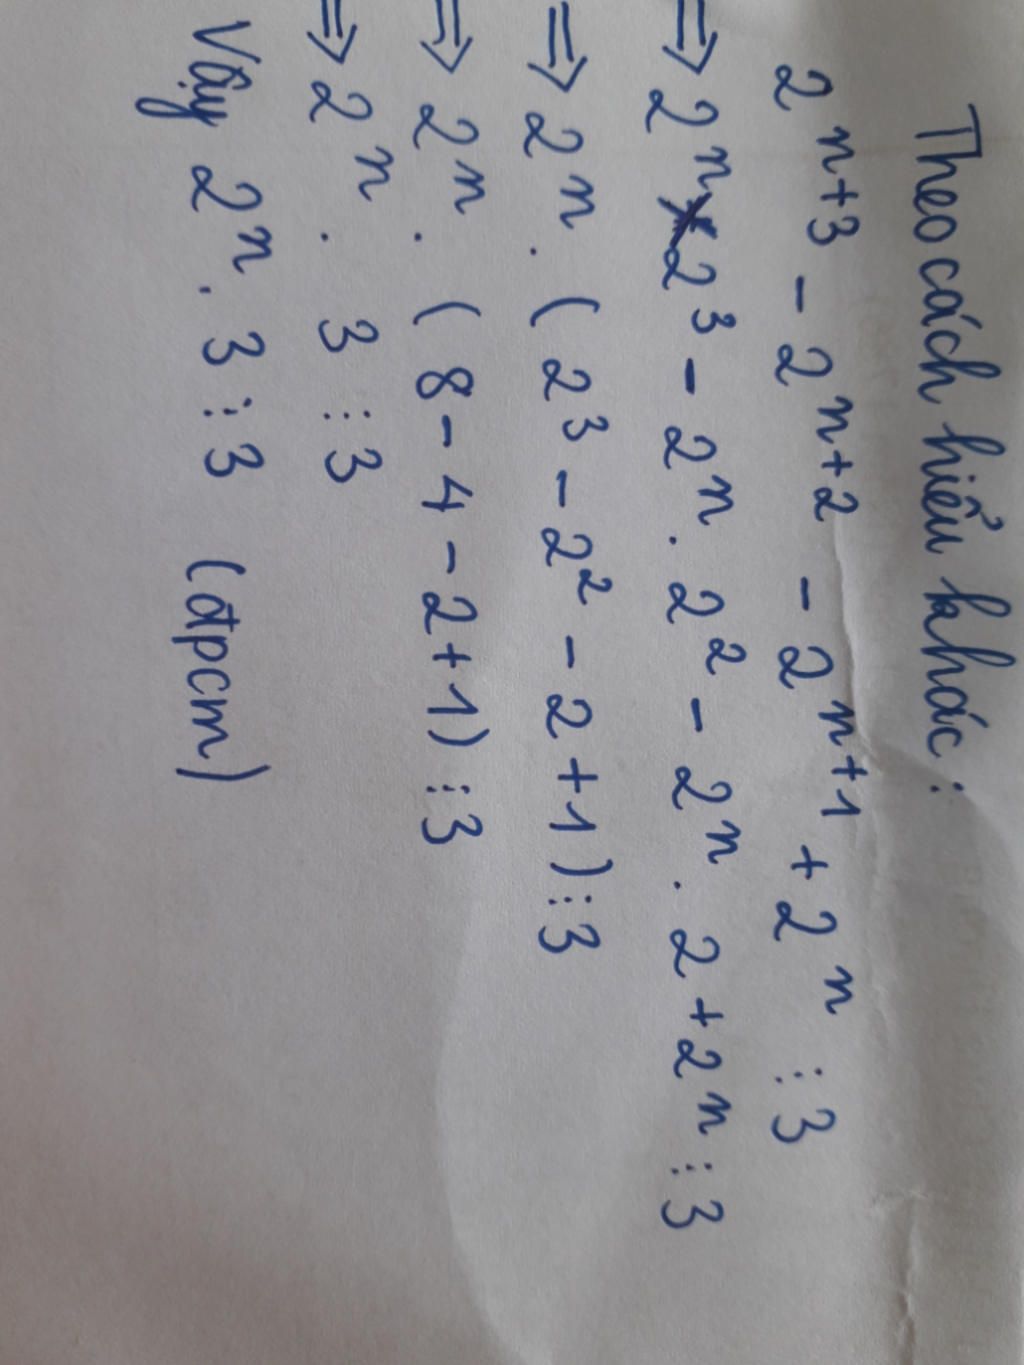 Theo cách hiểu khác:
2ⁿ⁺³ - 2ⁿ⁺² - 2ⁿ⁺¹ + 2ⁿ ⋮ 3
⇒ 2ⁿ . 2³ - 2ⁿ . 2² - 2ⁿ . 2 + 2ⁿ ⋮ 3
⇒ 2ⁿ . (2³ - 2² - 2 + 1) ⋮ 3
⇒ 2ⁿ . (8 - 4 - 2 + 1) ⋮ 3
⇒ 2ⁿ . 3 ⋮ 3
Vậy 2ⁿ . 3 ⋮ 3 (đpcm)